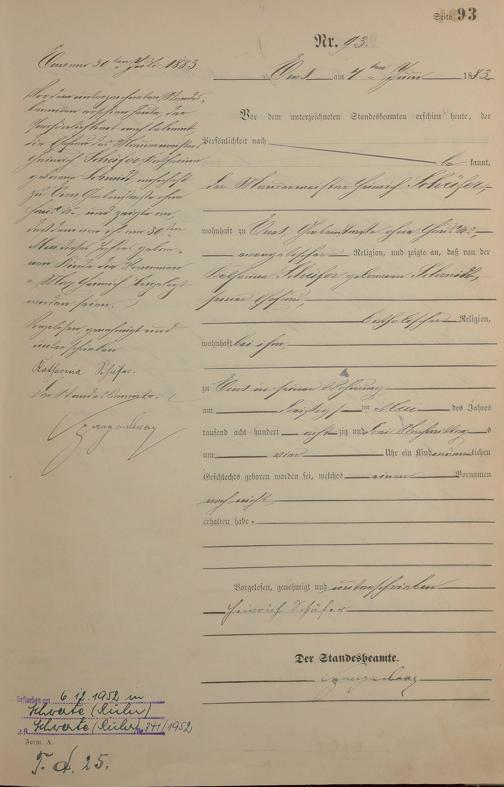 Seite 93
Nr. 93.
am 4 ten Juni 1883
Vor dem unterzeichneten Standesbeamten erschien heute, der
Persönlichkeit nach
be kannt,
der Maurermeister Heinrich Schäfer,
wohnhaft zu
Religion, und zeigte an, daß von der
Katharina Schäfer geborenen Schmidt,
seiner Ehefrau,
katholischer Religion,
wohnhaft bei ihm,
zu in seiner Wohnung
am dreißigsten Mai des Jahres
tausend acht hundert achtzig und drei
um Uhr ein Kind männlichen
Geschlechts geboren worden sei, welches einen Vornamen
noch nicht
erhalten habe.
Vorgelesen, genehmigt und unterschrieben
Heinrich Schäfer
Der Standesbeamte.
30 ten Juli 1883.
Vor dem unterzeichneten Standes-
beamten erschien heute, der
Persönlichkeit nach bekannt,
die Ehefrau des Maurermeisters
Heinrich Schäfer, Katharina
geborene Schmidt, wohnhaft
und zeigte an,
daß dem am 30 ten
Mai dieses Jahres gebore-
nen Kinde die Vornamen
Heinrich beigelegt
worden seien.
Vorgelesen, genehmigt und
unterschrieben
Katharina Schäfer.
Der Standesbeamte.
Gestorben am 6.12.1952 in
Schwerte (Ruhr)
Schwerte (Ruhr) Nr. 241/1952
Form. A.
T. d. 25.